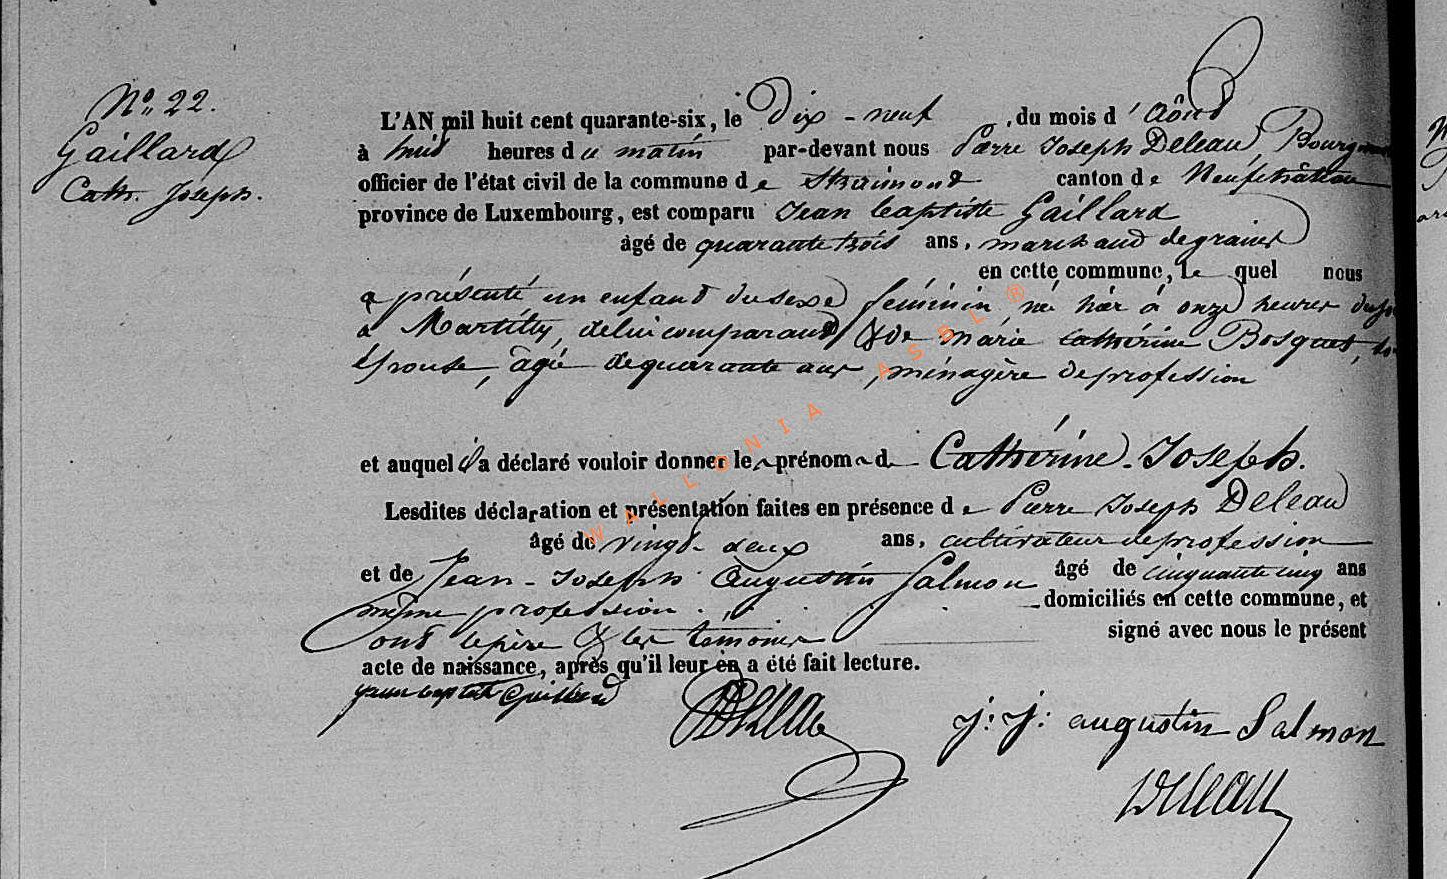 N° 22.
Gaillard
Cath. Joseph.
L'AN mil huit cent quarante-six, le Dix-neuf du mois d'Août
à huit heures du matin par-devant nous Pierre Joseph Deleau
officier de l'état civil de la commune de Straimont canton de Neufchâteau
province de Luxembourg, est comparu Jean baptiste Gaillard
âgé de quarante trois ans, marchand de graines
en cette commune, le quel nous
a présenté un enfant du sexe féminin né hier à onze heures du
à Martilly, de lui comparant & de Marie Cathérine Bosquet,
Epouse, âgée de quarante ans, ménagère de profession
et auquel il a déclaré vouloir donner le prénom de Cathérine-Joseph.
Lesdites déclaration et présentation faites en présence de Pierre Joseph Deleau
âgé de vingt-deux ans, cultivateur de profession
et de Jean-Joseph Augustin Salmon âgé de cinquante cinq ans
même profession. domiciliés en cette commune, et
ont le père & les témoins signé avec nous le présent
acte de naissance, après qu'il leur en a été fait lecture.
jean baptiste Gaillard
j: j: augustin Salmon
Deleau
WALLONIA ASBL ®